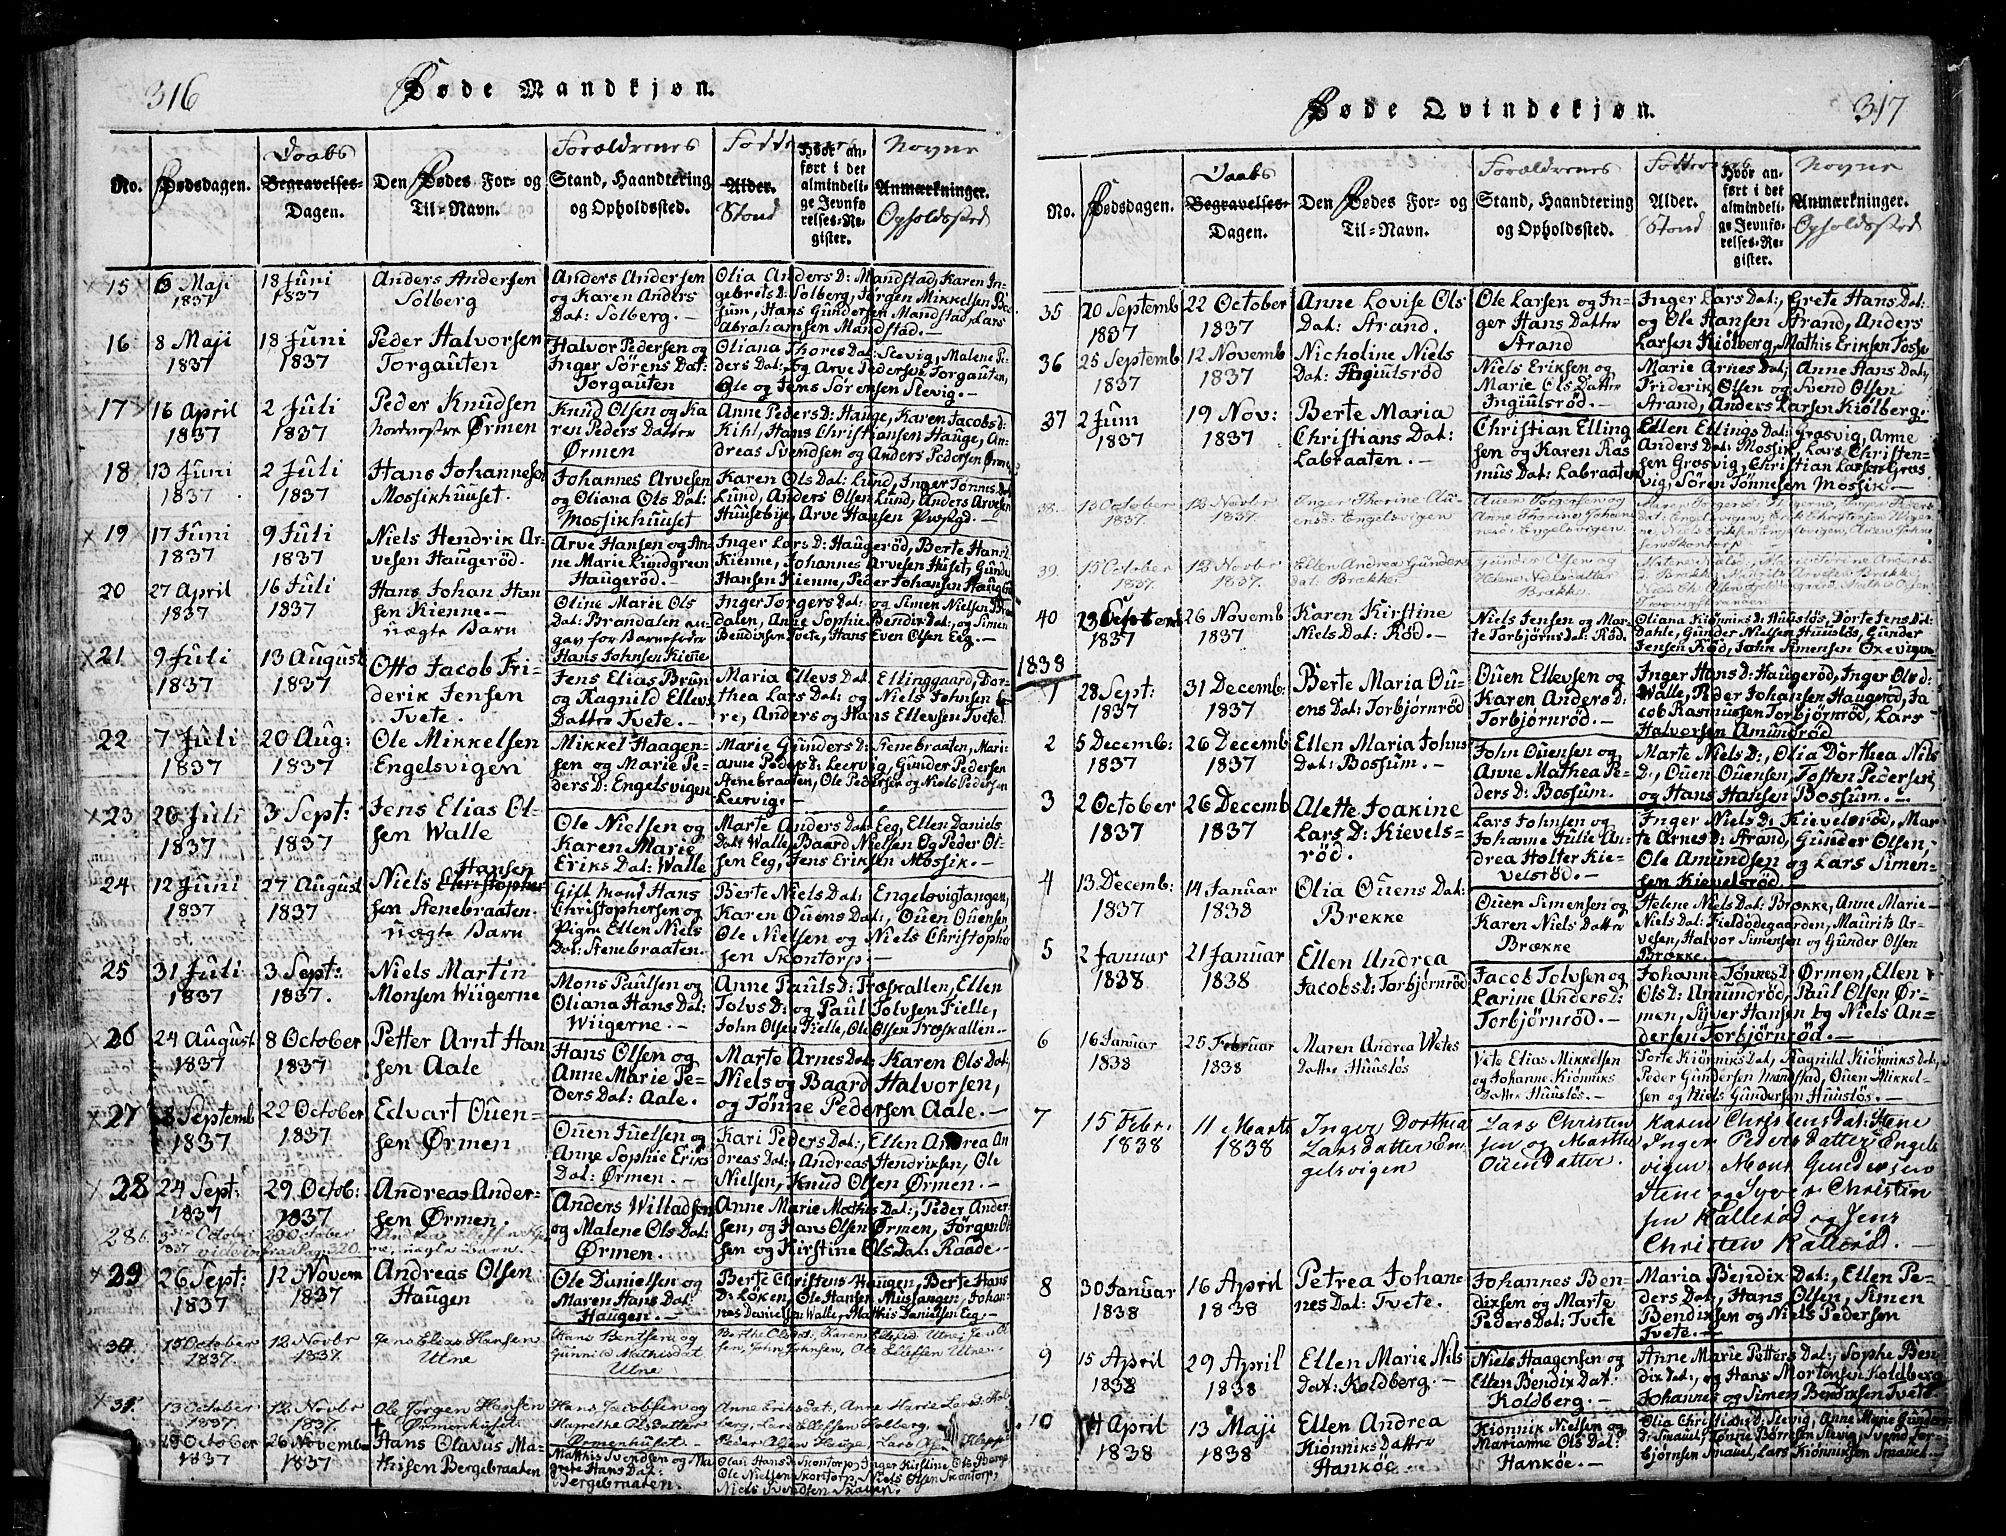 316
Døde Mandkjøn.
No.
Dødsdagen.
Daabs
Begravelses-
Dagen.
Den Dødes For- og
Til-Navn.
Forældrenes
Stand, Haandtering
og Opholdssted.
Alder.
Stand
Hvor an-
ført i det
almindeli-
ge Jevnfø-
relses-Re-
gister.
Novne
Anmærkninger.
Opholdssted
15
6 Maji
1837
18 Juni
1837
Anders Andersen
Solberg
Anders Andersen
og Karen Anders
Dat: Solberg.-
Olia Anders D: Mandstad, Karen In-
gebrets D: Solberg, Jörgen Mikkelsen Bos-
sum, Hans Gundersen Mandstad, Lars
Abrahamsen Mandstad.-
16
8 Maji
1837
18 Juni
1837
Peder Halvorsen
Torgauten
Halvor Pedersen og
Inger Sörens Dat:
Torgauten
Oliana Thores Dat: Slevig, Malene Pe-
ders Dat:, og Arve Pedersen Torgauten,
Ole og Jens Sörensen Slevig.-
17
16 April
1837
2 Juli
1837
Peder Knudsen
Ørmen
Knud Olsen og Ka
ren Peders Datter
Ørmen
Anne Peders D: Hauge, Karen Jacobs D:
Kihl, Hans Christiansen Hauge, An-
dreas Svendsen og Anders Pedersen Ørmen
18
13 Juni
1837
2 Juli
1837
Hans Johannesen
Mossikhuuset.
Johannes Arvesen
og Oliana Ols Dat:
Mossikhuuset
Karen Ols Dat: Lund, Inger Tönnes Dat
Lund, Anders Olsen Lund, Anders Arvesen
Huusebye, Arve Hansen
19
17 Juni
1837
9 Juli
1837
Niels Hendrik Ar-
vesen Haugeröd.
Arve Hansen og An-
ne Marie Lundgreen
Haugeröd.
Inger Lars D: Haugeröd, Berte Hans D.
Kienne, Johannes Arvesen Huset, Gunder
Hansen Kienne, Peder Johansen Haugeröd
20
27 April
1837
16 Juli
1837
Hans Johan Han
sen Kienne.-
uægte Barn
Oline Marie Ols
Dat: Brandalen an-
gav for Barnefader
Hans Johnsen Kienne
Inger Torgers Dat: og Simen Nielsen Bran
dalen, Anne Sophie Bendix Dat:, og Simen
Bendixsen Tvete, Hans Even Olsen Eeg.-
21
9 Juli
1837
13 August
1837
Otto Jacob Fri-
derik Jensen
Tvete.
Jens Elias Brun
og Ragnild Ellevs
Datter Tvete.
Maria Ellevs Dat: Ellinggaard, Dor-
thea Lars Dat: og Niels Johnsen
re, Anders og Hans Ellevsen Tvete.
22
7 Juli
1837
20 Aug:
1837
Ole Mikkelsen
Engelsvigen
Mikkel Haagen-
sen og Marie Pe-
ders D: Engelsvigen
Marie Gunders D: Stenebraaten, Mari-
anne Peders D: Leervig, Gunder Pedersen
Stenebraaten, Ole Pedersen og Niels Pedersen
Leervig.-
23
20 Juli
1837
3 Sept:
1837
Jens Elias Ol-
sen Walle
Ole Nielsen og
Karen Marie
Eriks Dat: Walle
Marte Anders Dat: Eeg, Ellen Daniels
Dat: Walle, Baard Nielsen Og Peder Ol-
sen Eeg, Jens Eriksen Mossik.-
24
12 Juni
1837
27 August
1837
Niels Hansen
Christopher
sen Stenebraaten.
uægte Barn
Gift Mand Hans
Christophersen og
Pigen Ellen Niels
Dat: Stenebraaten.
Berte Niels Dat: Engelsvigtangen,
Karen Ouens Dat:, Ouen Ouensen
Ole Nielsen og Niels Christopher
sen Skontorp.-
25
31 Juli
1837
3 Sept:
1837.
Niels Martin
Monsen Wiigerne
Mons Paulsen og
Oliana Hans Dat:
Wiigerne.-
Anne Pauls D: Træskallen, Ellen
Tolvs D: og Paul Tolvsen Fielle,
John Olsen Fielle, Ole Olsen Træskallen.-
26
24 August
1837
8 October
1837
Petter Arnt Han
sen Aale
Hans Olsen og
Anne Marie Pe-
ders Dat: Aale.
Marte Arnes Dat: Karen Ols Dat:
Niels og Baard Halvorsen,
og Tönne Pedersen Aale.-
27
8 Septemb
1837
22 October
1837
Edvart Ouen-
sen Ørmen
Ouen Juelsen og
Anne Sophie Eriks
Dat: Ørmen.
Kari Peders Dat:, Ellen Andrea An
dreas Dat:, Andreas Hendriksen, Ole
Nielsen, Knud Olsen Ørmen.-
28
24 Sept:
1837
29 Octob:
1837
Andreas Ander-
sen Ørmen.
Anders Willadsen
og Malene Ols Dat:
Ørmen.
Anne Marie Mathis Dat:, Peder Ander-
sen, og Hans Olsen Ørmen, Jörgen Ol
sen og Kirstine Ols Dat: Raade.-
28b.
October
1837
29 October
Pag 320.
uægte Barn.
29
26 Sept:
1837
12 Novem
1837
Andreas Olsen
Haugen
Ole Danielsen og
Maren Hans Dat:
Haugen.-
Berte Christens Haugen, Berte Hans
D: Löken, Ole Hansen Muslangen, Johan-
nes Danielsen Walle, Mathis Danielsen Eeg.-
30.
15 October
1837.
12 Novbr
1837.
Jens Elias Hansen
Utne
Hans Bentsen og
Gunnild Mathisdat
Utne
Berthe Olsdat, Karen Ellefsd Utne, Jens Ol
sen, John Johnsen, Ole Ellefsen Utne.
31.
13 October
1837.
12 Novbr
1837.
Ole Jörgen Hansen
Ørmenhuset
Hans Jacobsen og
Marethe Olsdatter
Ørmenhuset
Anne Eriksdat, Anne Marie Larsd. Hol
berg, Lars Ellefsen Solberg,
Peder Hauge, Lars
18 October
1837
26 Novemb
1837
Hans Olavus Ma-
thisen Bergebraaten
Mathis Svendsen og Ma
grete Hans Dat:
Bergebraaten.
Olau Hans D: Skontorp, Inger Kirstine Ols Berge
Ole Nielsen Skontorp, Niels Olsen Skontorp,
Niels Svendsen
317
Døde Qvindekjøn.
No.
Dødsdagen.
Daabs
Begravelses-
Dagen.
Den Dødes For- og
Til-Navn.
Forældrenes
Stand, Haandtering
og Opholdssted.
Alder.
Stand
Hvor an-
ført i det
almindeli-
ge Jevnfø-
relses-Re-
gister.
Novne
Anmærkninger.
Opholdssted
35
20 Septemb
1837
22 October
1837
Anne Lovise Ols
Dat: Strand.
Ole Larsen og In-
ger Hans Datter
Strand
Inger Lars Dat:, Grete Hans Dat:
og Ole Hansen Strand, Anders
Larsen Kiölberg, Mathis Eriksen Tosse
36
25 Septemb
1837
12 Novemb
1837
Nicholine Niels
Dat: Ingiulsröd
Niels Eriksen og
Marie Ols Datter
Ingiulsröd.-
Marie Arnes Dat:, Anne Hans Dat:,
Friderik Olsen og Svend Olsen
Strand, Anders Larsen Kiölberg.
37
2 Juni
1837
19 Nov:
1837
Berte Maria
Christians Dat:
Labraaten.
Christian Elling
sen og Karen Ras
mus Dat: Labraaten
Ellen Ellings Dat: Grosvig, Anne
Anders Dat: Mossik, Lars Christen-
sen Grosvig, Christian Larsen Gros
vig, Sören Tönnesen Mossik.-
38.
13 October
1837.
12 Novbr
1837.
Inger Thorine Au-
ensd: Engelsvigen
Auen Torgersen og
Anne Thorine Johan
Engelsvigen
39.
15 October
1837.
12 Novbr
1837.
Ellen Andrea Gunders
dat: Brække
Gunder Olsen og
Helene Nielsdatter
Brække
40
23 Septemb
1837
26 Novemb
1837
Karen Kirstine
Niels Dat: Röd.
Niels Jensen og Mar-
te Torbjörns Dat: Röd.
Oliana Kiönniks D: Huuslös, Dorte Jens Dat:
Dahle, Gunder Nielsen Huuslös, Gunder
Jensen Röd, John Simensen Oxevigen
1838
1
28 Sept:
1837
31 Decemb:
1837
Berte Maria Ou-
ens Dat: Torbjörnröd
Ouen Ellevsen og
Karen Anders D:
Torbjörnröd.-
Inger Hans D: Haugeröd, Inger Ols D:
Walle, Peder Johansen Haugeröd, Ja
cob Rasmussen Torbjörnröd, Lars
Halvorsen Amundröd
2
5 Decemb:
1837
26 Decemb
1837
Ellen Maria Johns
Dat: Bossum.-
John Ouensen og
Anne Mathea Pe-
ders D: Bossum.
Marte Niels D:, Olia Dorthea Niels
D:, Ouen Ouensen, Tosten Pedersen,
og Hans Hansen Bossum.-
3
2 October
1837
26 Decemb
1837
Alette Joakine
Lars D: Kievels-
röd.
Lars Johnsen og
Johanne Julie An-
drea Holter Kie-
velsröd.
Inger Niels D: Kievelsröd, Mar
te Arnes D: Strand, Gunder Olsen,
Ole Amundsen og Lars Simen-
sen Kievelsröd.
4
13 Decemb:
1837
14 Januar
1838
Olia Ouens Dat:
Brekke
Ouen Simensen og
Karen Niels Datter
Brække
Helene Niels Dat: Brøkke, Anne Marie
Niels Dat: Fieldödegaarden, Maurits Ar-
vesen, Halvor Simensen og Gunder Olsen
Brække.-
5
2 Januar
1838
21 Januar
1838
Ellen Andrea
Jacobs D: Torbjörnröd
Jacob Tolvsen og
Larine Anders D:
Torbjörnröd.-
Johanne Tönnes D: Ørmen, Ellen
Ols D: Amundröd, Paul Olsen Ør-
men, Syver Hansen og Niels An-
dersen Torbjörnröd.-
6
16 Januar
1838
25 Februar
1838
Maren Andrea Wetes
Datter Huuslös
Vete Elias Mikkelsen
og Johanne Kiönniks
Datter Huuslös.-
Torte Kiönniks Dat, Ragnild Kiönniks Dat,
Peder Gundersen Mandstad, Ouen Mikkel-
sen og Niels Gundersen Huuslös.-
7
15 Febr.
1838
11 Marts
1838
Inger Dorthea
Larsdatter En
gelsvigen
Lars Christen
sen og Marthe
Ouendatter.
Karen Christensdat: Stene
Inger Pedersdatter Engels
vigen, Mons Gundersen
Stene og Syver Christen
sen Kallerød og Jens
Christen Kallerød.-
8
30 Januar
1838
16 April
1838
Petrea Johan-
nes Dat: Tvete.
Johannes Ben-
dixsen og Marte
Peders Dat: Tvete
Maria Bendix Dat:, Ellen Pe-
ders Dat:, Hans Olsen, Simen
Bendixsen og Niels Pedersen
Tvete.-
9
15 April
1838
29 April
1838
Ellen Marie Nils
Dat: Koldberg.-
Niels Haagensen og
Ellen Bendix Dat:
Koldberg.-
Anne Marie Petters Dat:, Sophe Ben
dix Dat:, og Hans Mortensen Koldberg
Johannes og Simen Bendixsen Tvete.
10
11 April
1838
13 Maji
1838
Ellen Andrea
Kiönniks Datter
Hanköe
Kiönnik Nielsen og
Marianne Ols Dat:
Hanköe.-
Olia Christians D: Slevig, Anne Marie Gunder
D: Smauel, Tönne Börresen Slevig, Svend Tor-
björnsen Smauel, Lars Kiönniksen Smauel.-